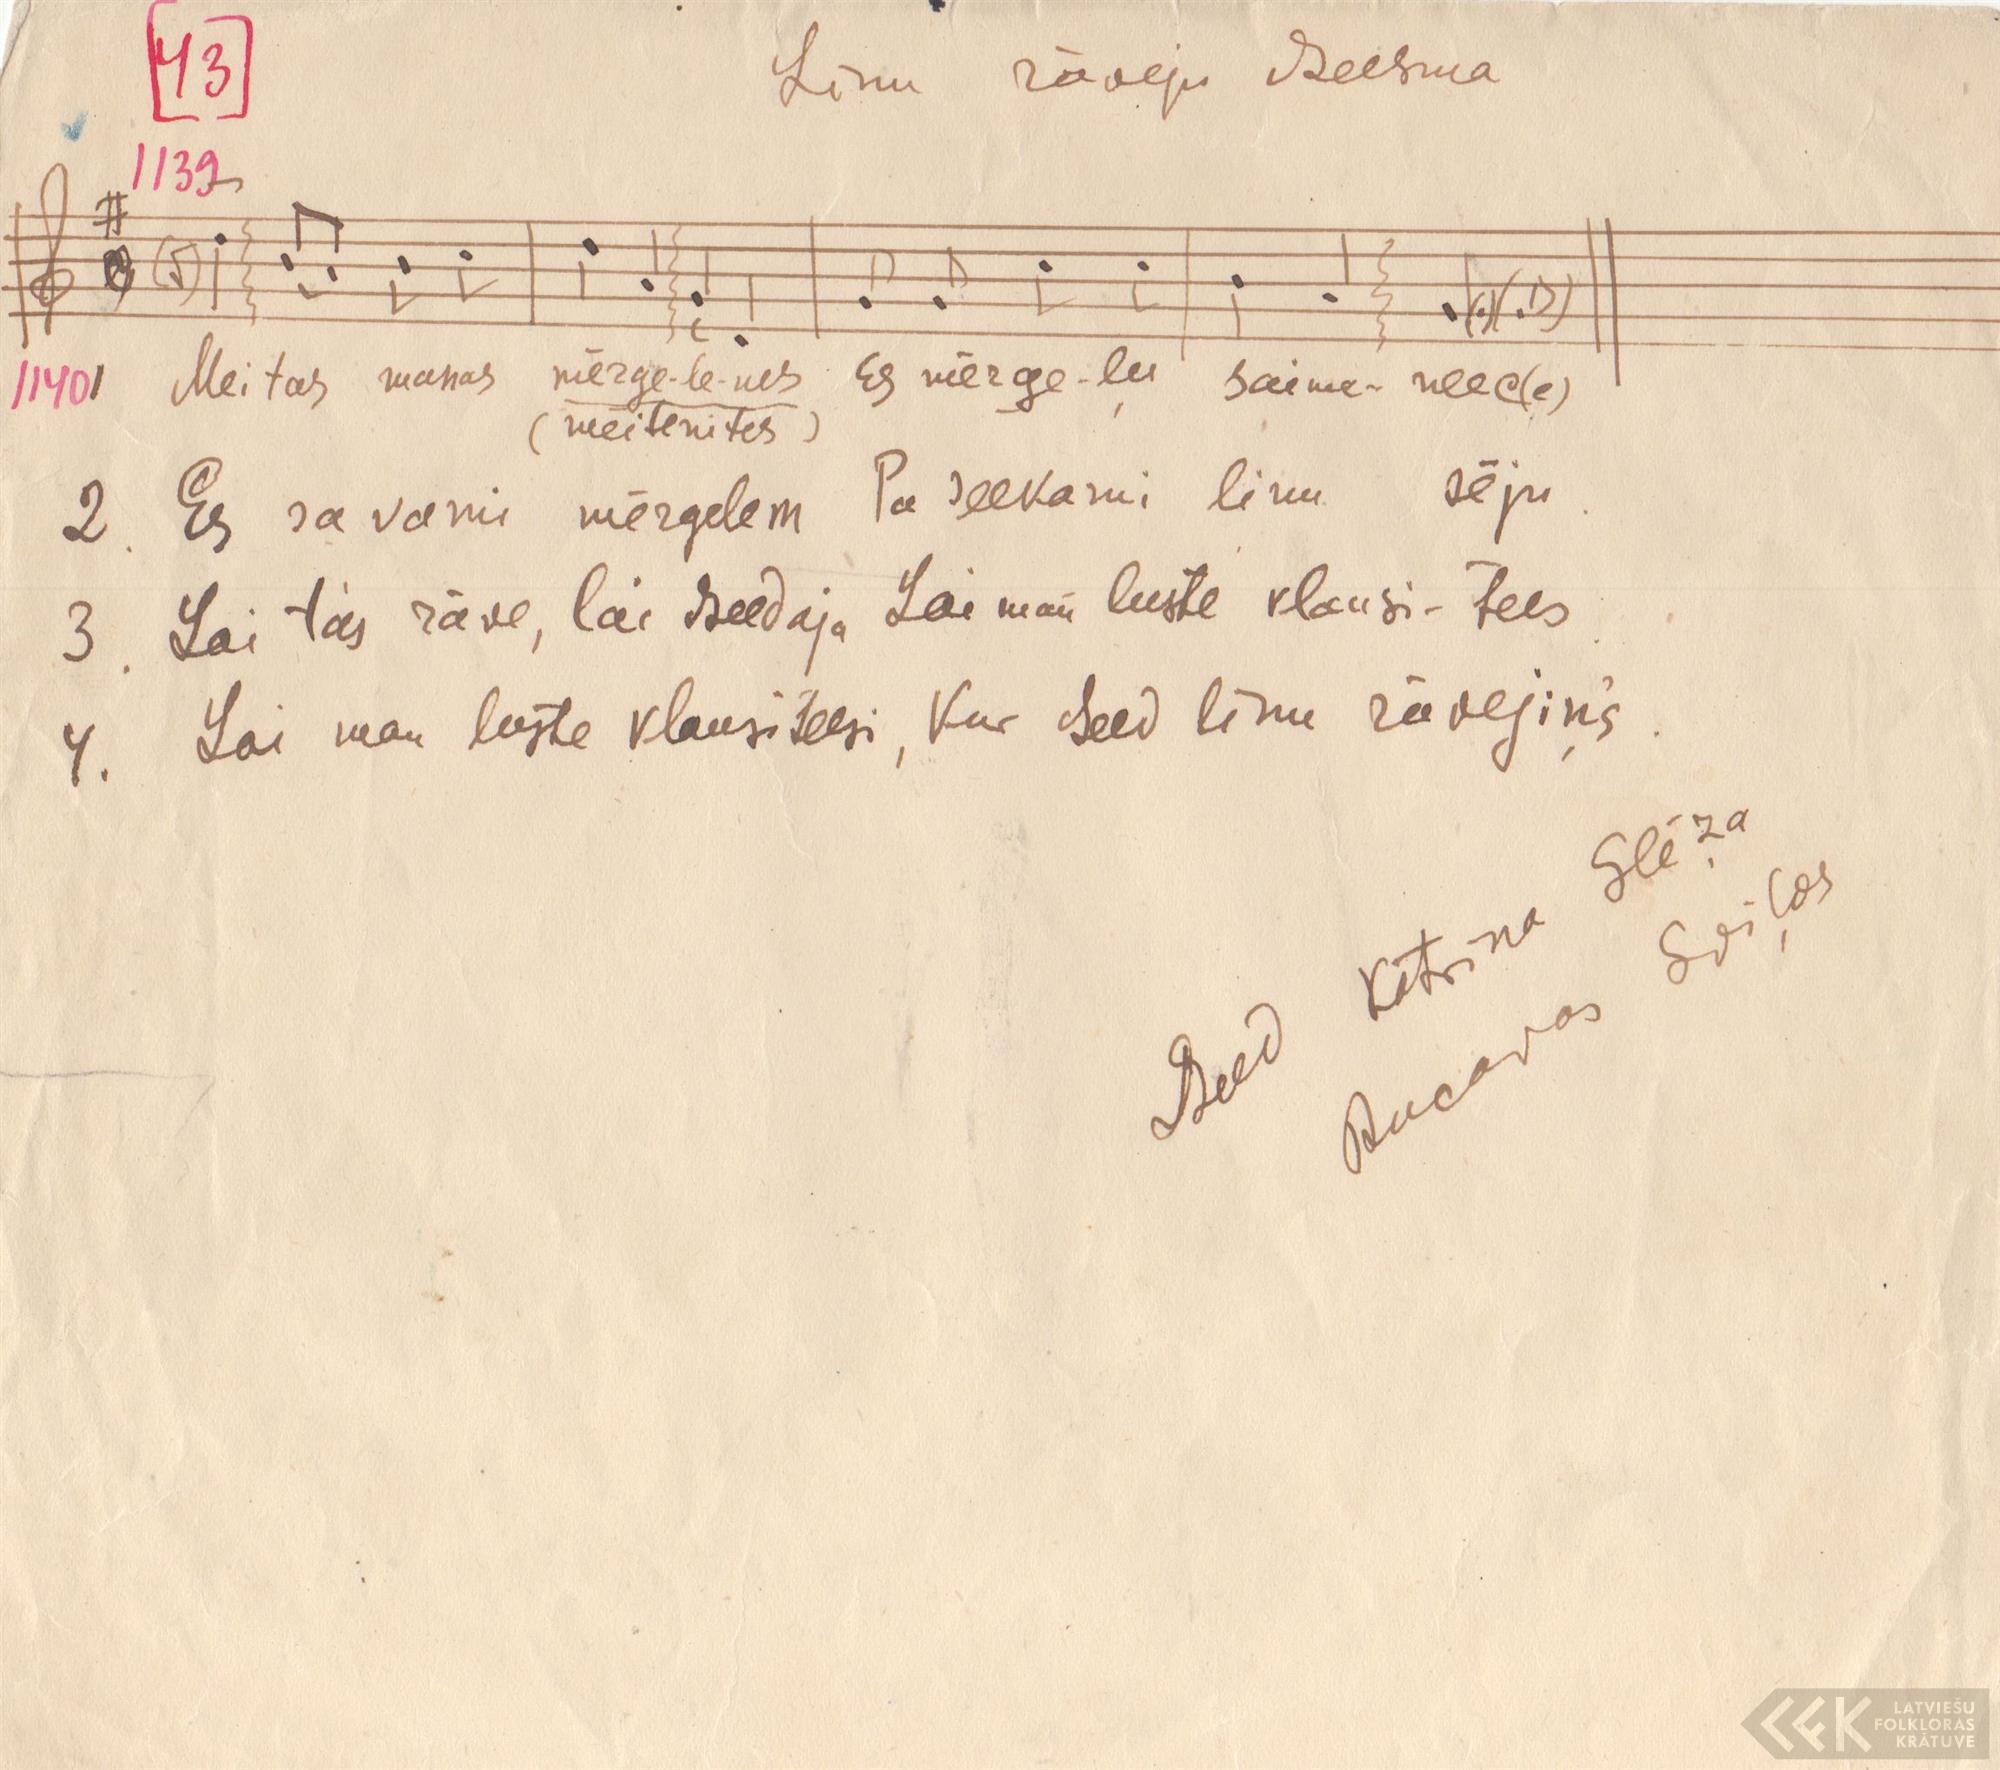 [43]
Linu rāveju dzeesma
1139
1140
1 Meitas manas mērge-le-nes Es mērge-ļu saime-neec(e)
(meitenites)
2. Es savami mērgelem Pa seekami linu sēju.
3. Lai tās rāve, lai dzeedaja Lai man luste klausi-tees.
4. Lai man luste klausiteesi, Kur dzeed linu rāvejiņ's.
Dzeed Katrīna Glēža
Rucavas
LATVIEŠU
FOLKLORAS
KRĀTUVE